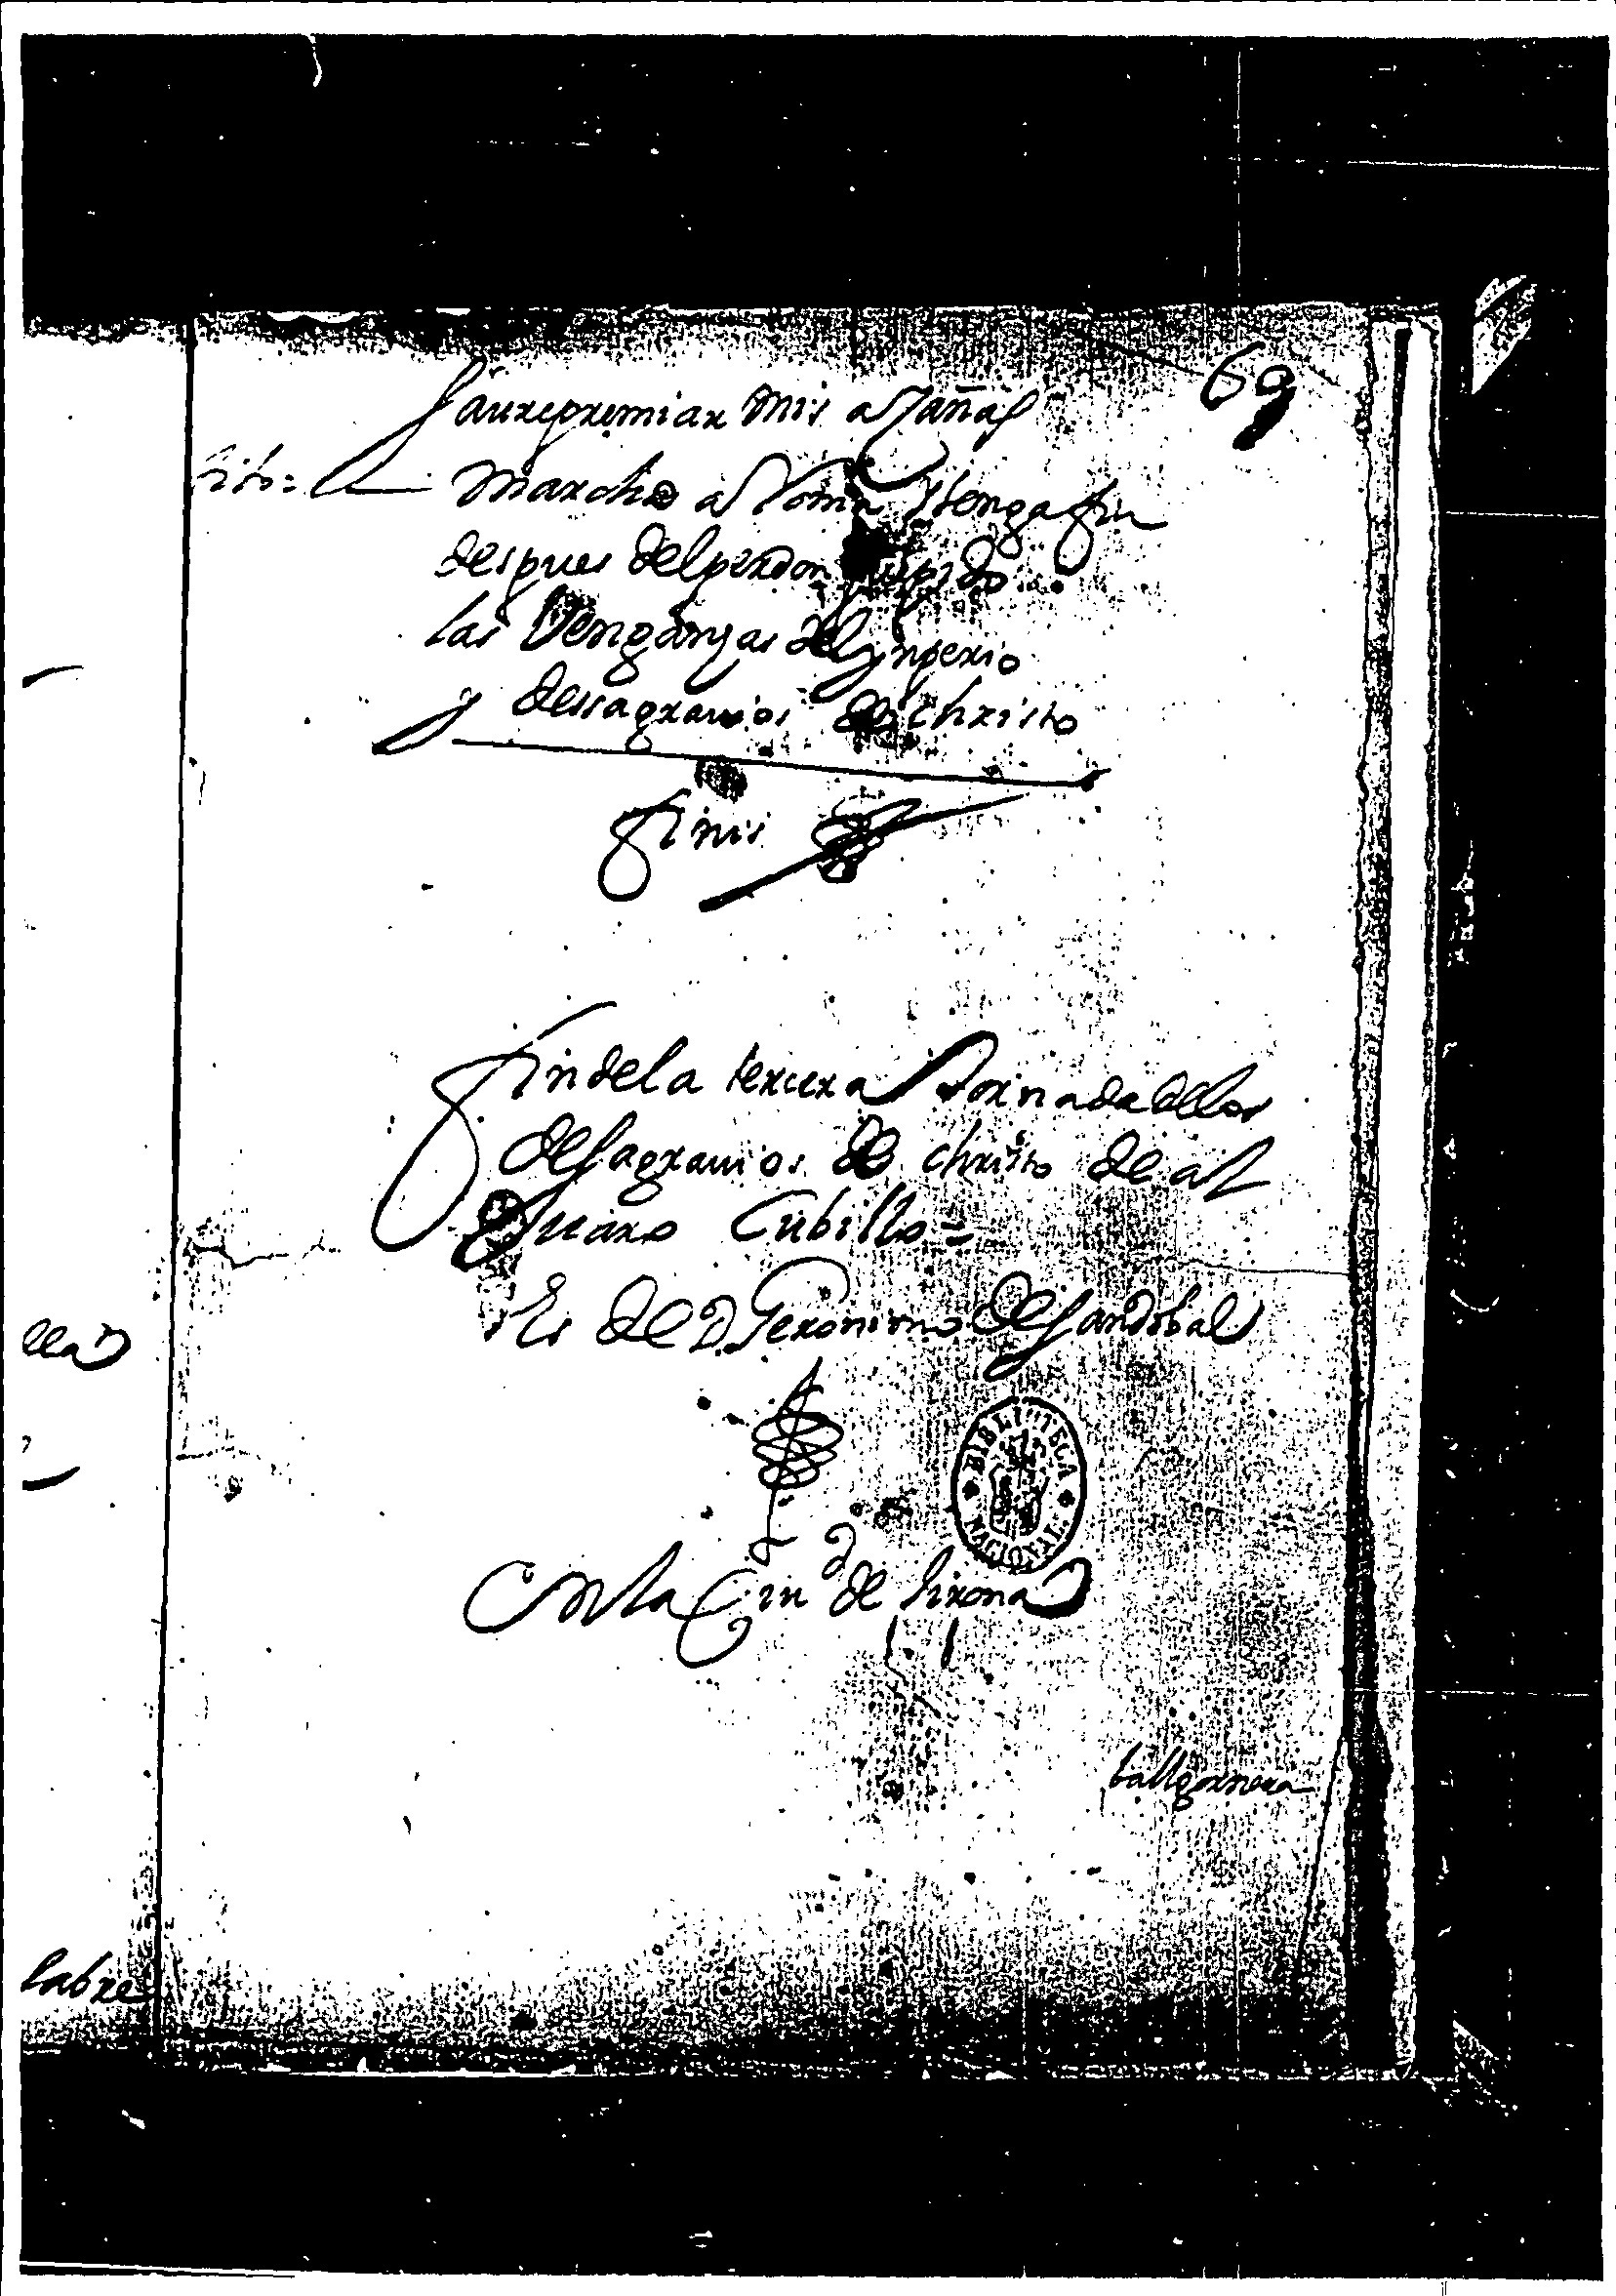 69
saure premiar mis açañas
tito = marcho a Roma y tenga fin
despues del perdon pido
las Venganzas del ynperio
y dessagrauios de christo
finis
fin de la tercera Jornada de los
desagrauios de christo de al
Cubillo =
Es de D. Geronimo de sandobal
En la Ciu d de Girona
BIBLIOTECA NACIONAL
ballgornera
lla
labre